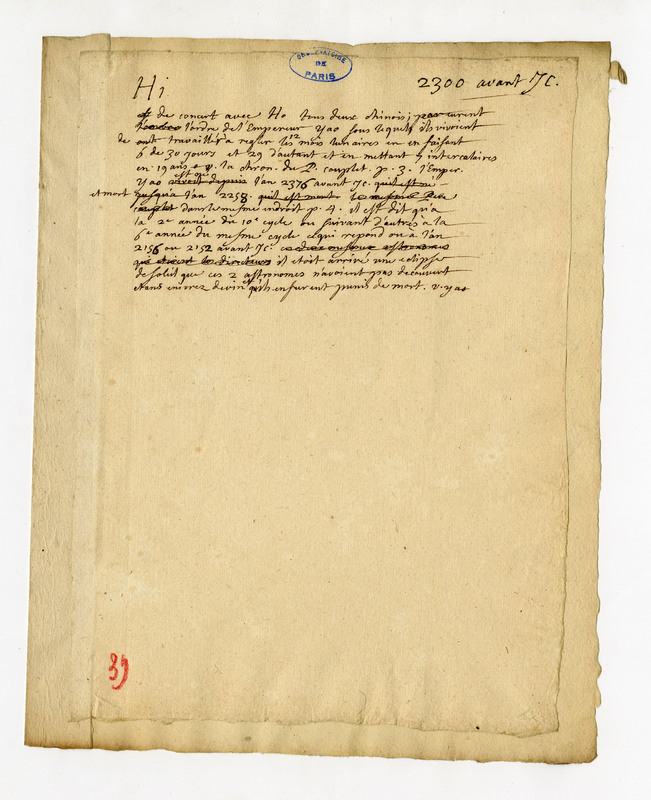 OBSERVATOIRE
DE
PARIS
Hi
2300 avant JC.
de concert avec Ho tous deux chinois, eurent
l'ordre de l'Empereur yao sous lequel ils vivoient
de travailler a regler les 12 mois lunaires en en faisant
6 de 30 jours et 29 d'autant et en mettant 7 intercalaires
en 19 ans v. la chron. du P. couplet p. 3. l'Emper.
yao est né l'an 2376 avant JC.
et mort l'an 2258.
dans le mesme endroit p. 4. il est dit qu'a
la 2e année du 10e cycle ou suivant d'autres a la
6e année du mesme cycle ce qui repond ou a l'an
2156 ou 2152 avant JC.
il etoit arrivé une eclipse
de soleil que ces 2 astronomes n'avoient pas decouvert
etans enivrez de vin et qu'ils en furent punis de mort. v. yao
39